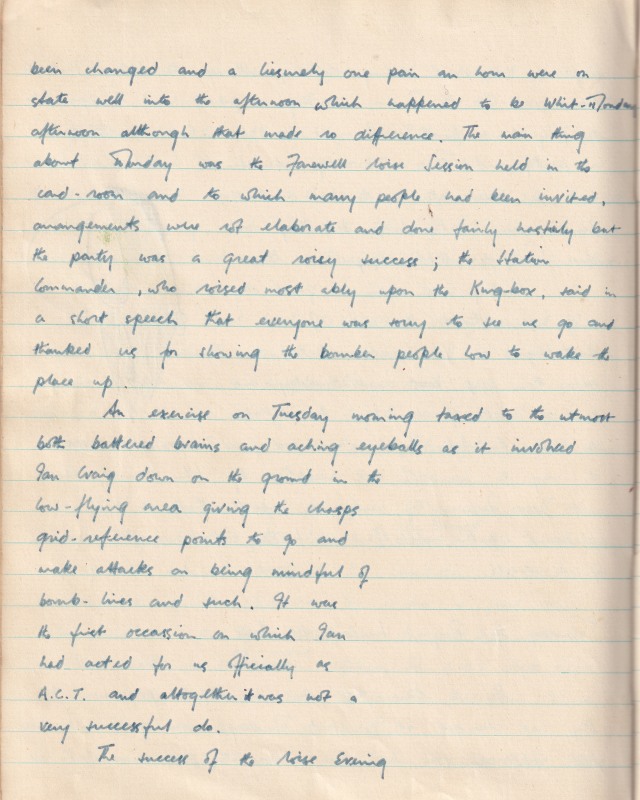 been changed and a leisurely one pair an hour were on
state well into the afternoon which happened to be Whit-Monday
afternoon although that made no difference. The main thing
about Monday was the Farewell Noise Session held in the
card-room and to which many people had been invited,
arrangements were not elaborate and done fairly hastily but
the party was a great noisy success; the Station
Commander, who noised most ably upon the Kwg-box, said in
a short speech that everyone was sorry to see us go and
thanked us for showing the bomber people how to wake the
place up.
An exercise on Tuesday morning taxed to the utmost
both battered brains and aching eyeballs as it involved
Ian Craig down on the ground in the
low-flying area giving the chaps
grid-reference points to go and
make attacks on being mindful of
bomb-lines and such. It was
the first occassion on which Ian
had acted for us officially as
A.C.T. and altogether it was not a
very successful do.
The success of the Noise Evening